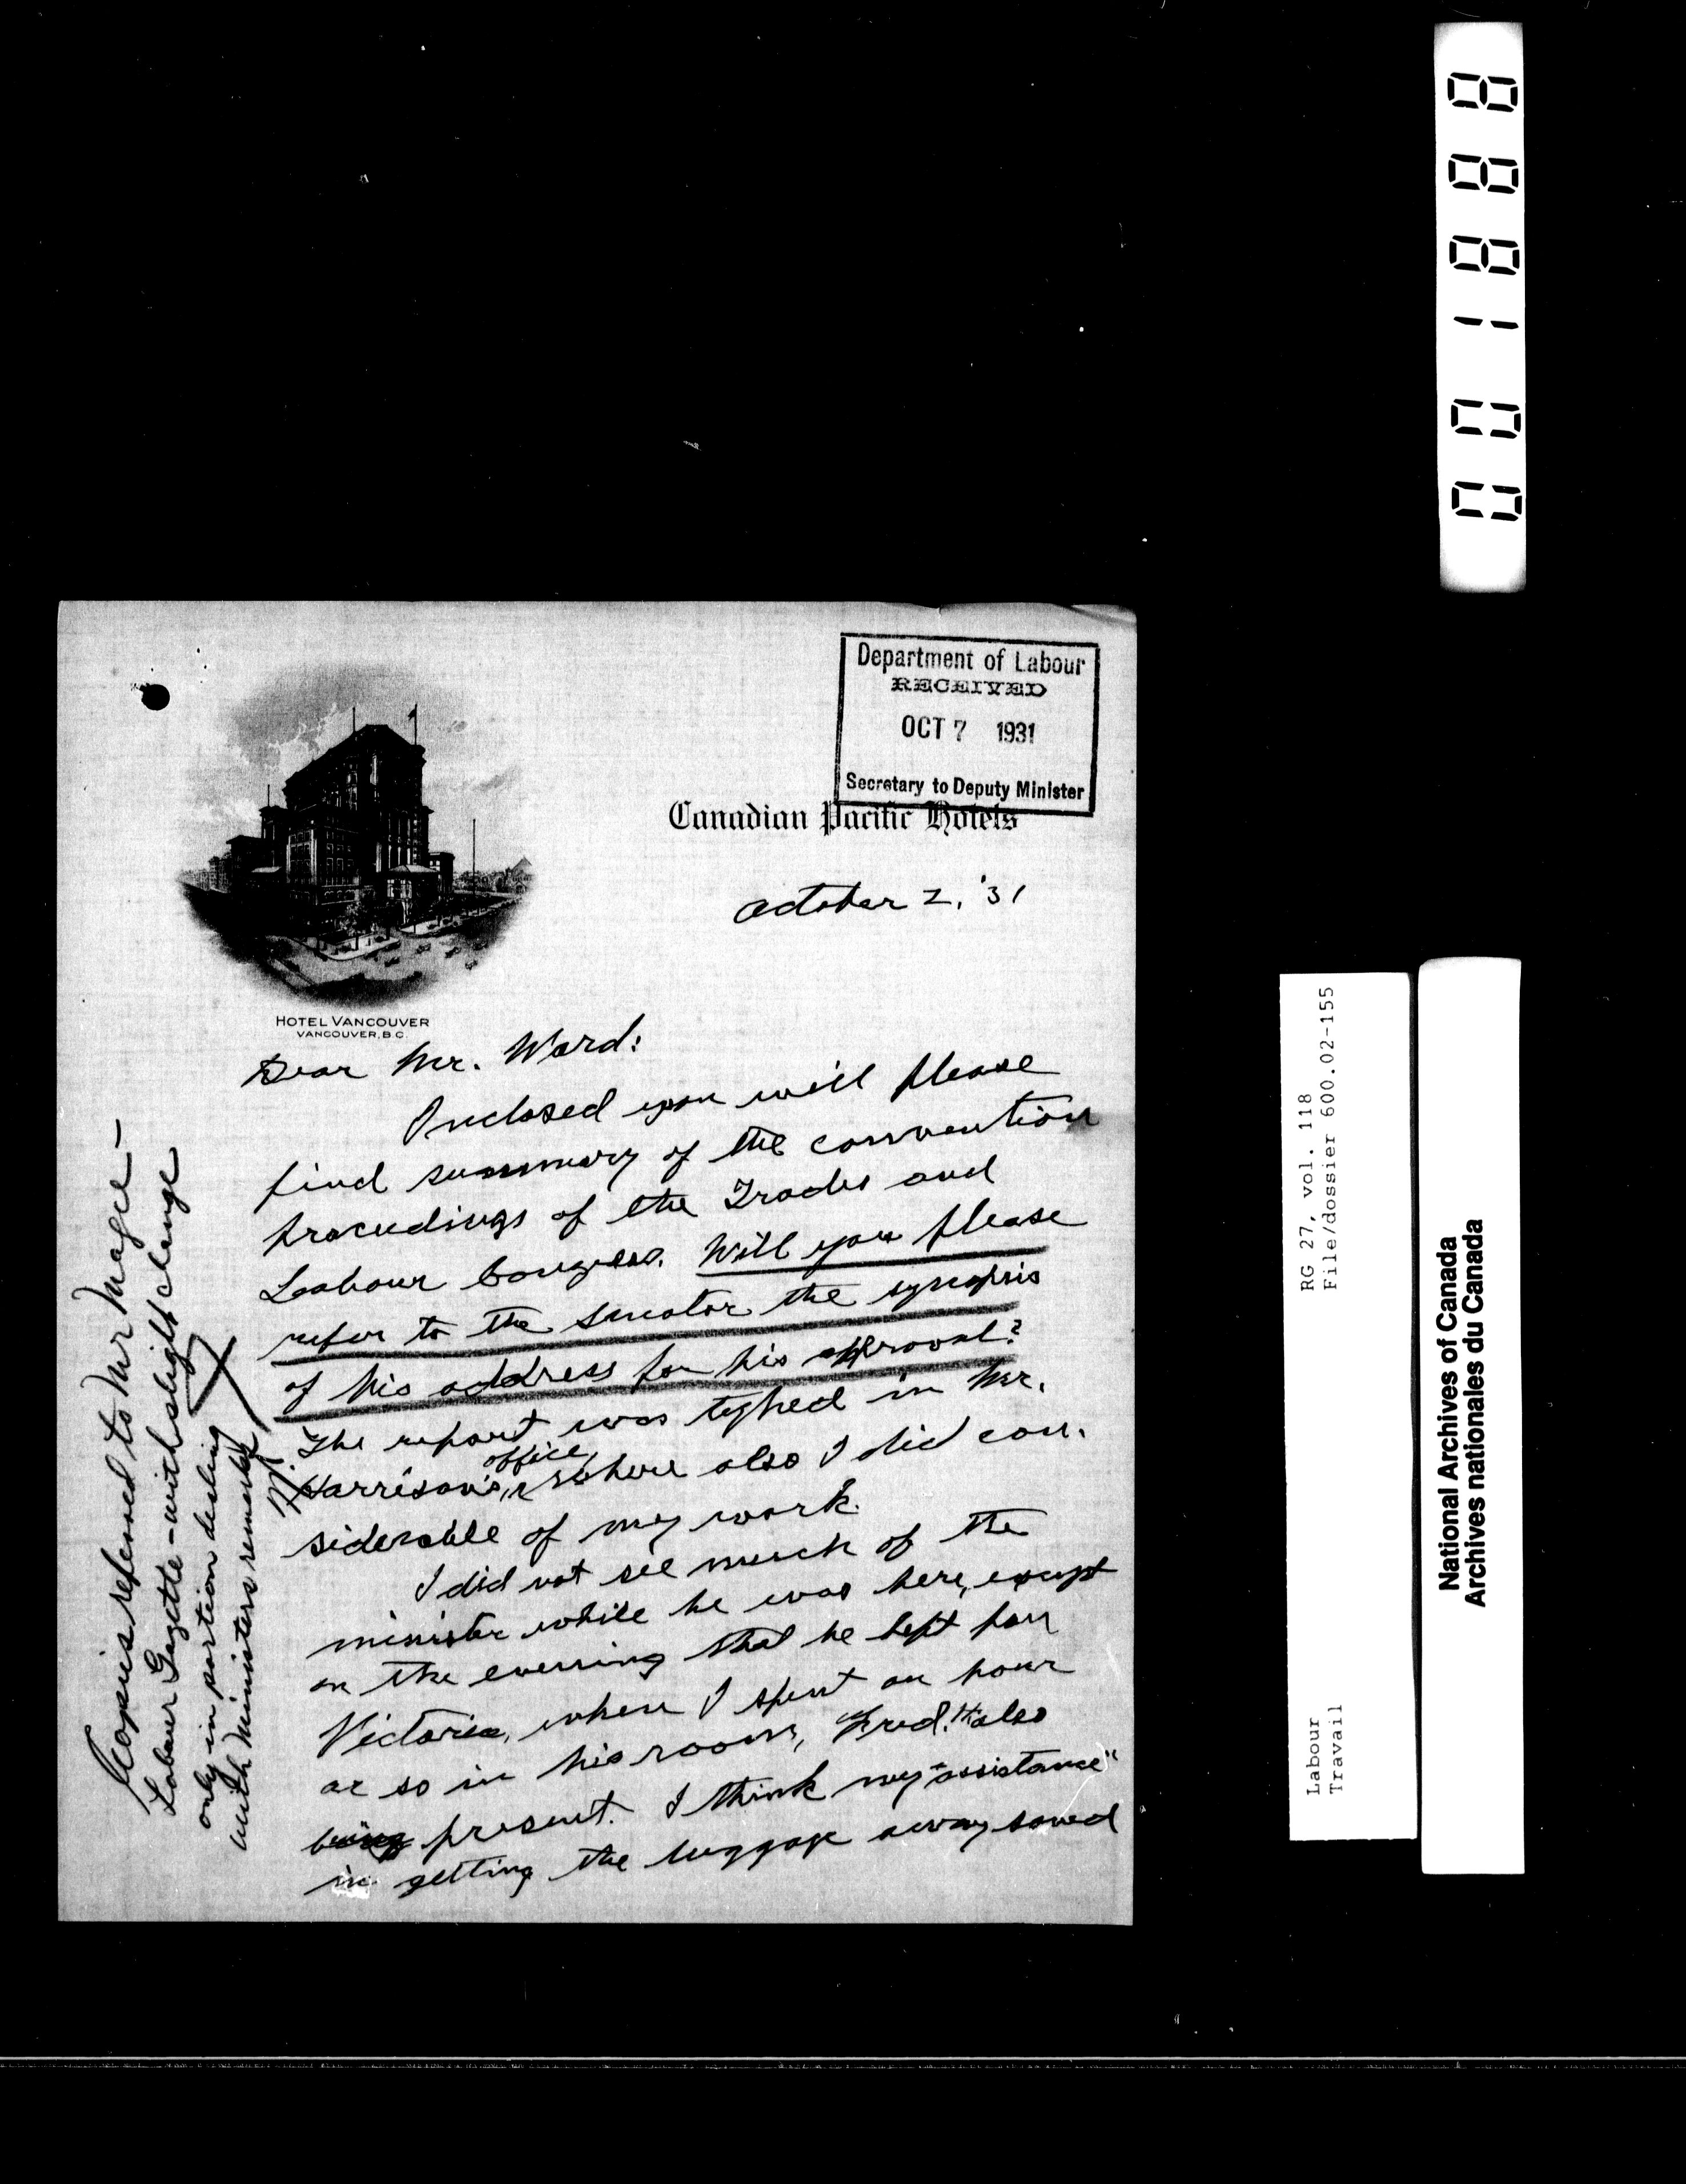 Department of Labour
RECEIVED
OCT 7 1931
Secretary to Deputy Minister
Canadian Pacific Hotels
HOTEL VANCOUVER
VANCOUVER, B.C.
October 2, '31
Dear Mr. Ward:
Inclosed you will please
find summary of the convention
proceedings of the Trades and
Labour Congress. Will you please
refer to the Senator the synopsis
of his address for his approval?
The report was typed in Mr.
Harrison's office, where also I did con-
siderable of my work.
I did not see much of the
minister while he was here, except
on the evening that he left for
Victoria, when I spent an hour
or so in his room, "Fred." also
being present. I think my "assistance"
in getting the luggage away saved
Copies referred to Mr Magee -
Labour Gazette - with slight change
only in portion dealing
with Ministers remarks
RG 27, vol. 118
File/dossier 600.02-155
Labour
Travail
National Archives of Canada
Archives nationales du Canada
001888